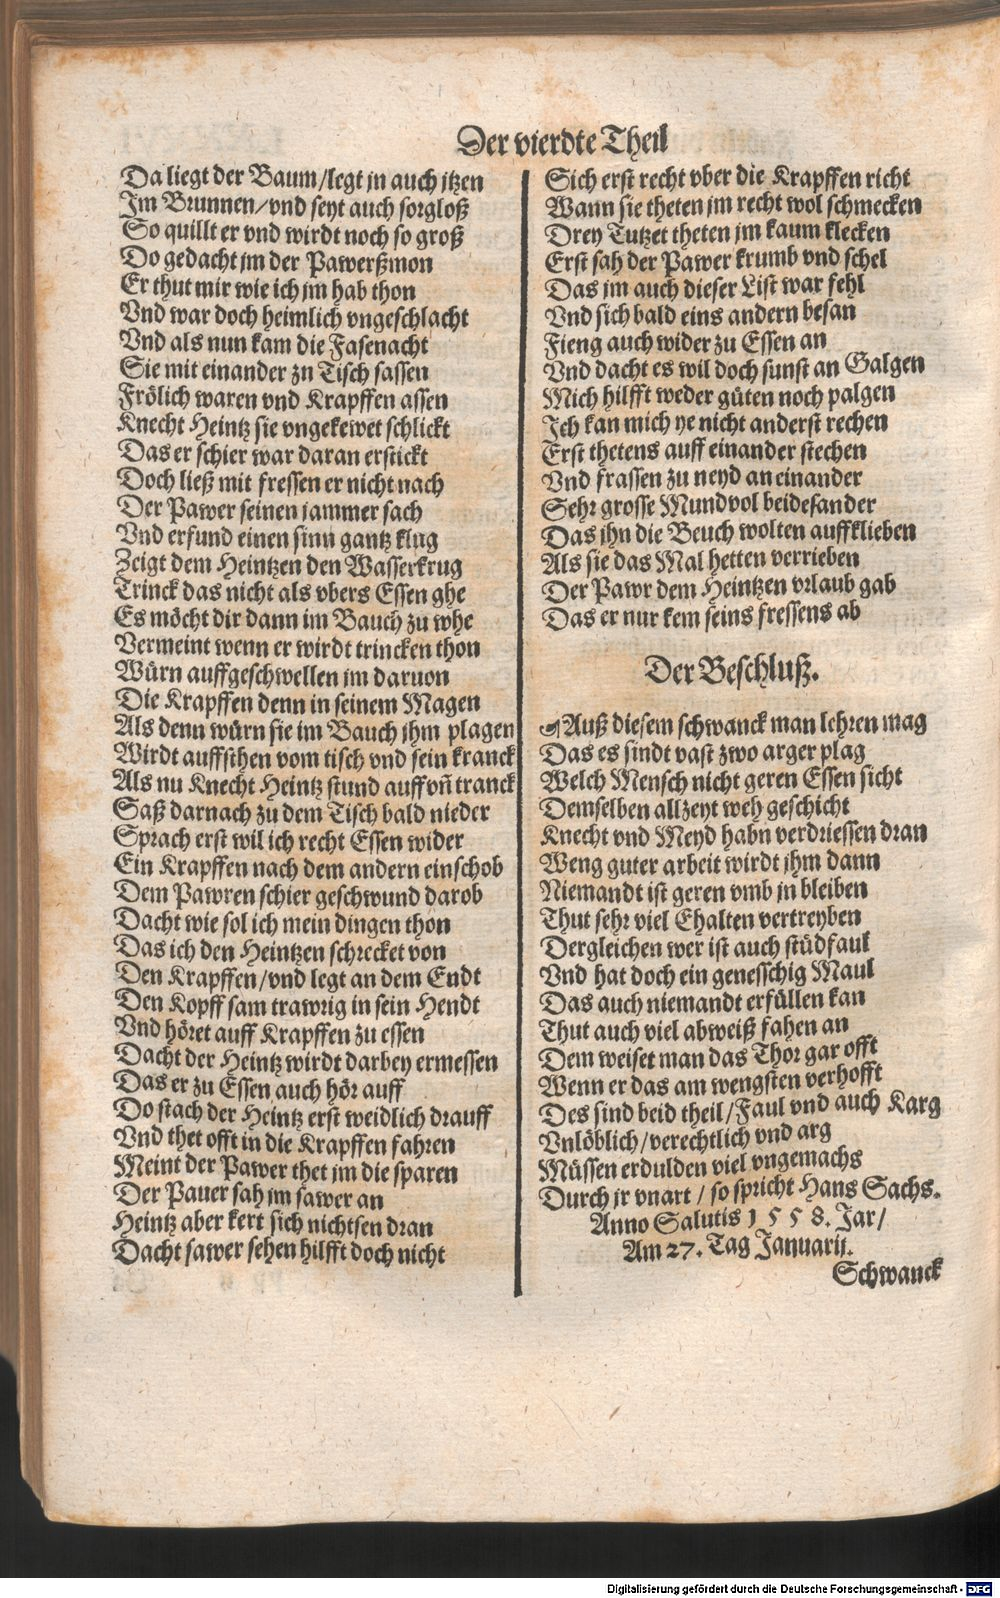 Der vierdte Theil
Da liegt der Baum/legt jn auch jtzen
Im Brunnen/vnd seyt auch sorgloß
So quillt er vnd wirdt noch so groß
Do gedacht jm der Pawerßmon
Er thut mir wie ich jm hab thon
Vnd war doch heimlich vngeschlacht
Vnd als nun kam die Fasenacht
Sie mit einander zu Tisch sassen
Frölich waren vnd Krapffen assen
Knecht Heintz sie vngekewet schlickt
Das er schier war daran erstickt
Doch ließ mit fressen er nicht nach
Der Pawer seinen jammer sach
Vnd erfund einen sinn gantz klug
Zeigt dem Heintzen den Wasserkrug
Trinck das nicht als vbers Essen ghe
Es möcht dir dann im Bauch zu whe
Vermeint wenn er wirdt trincken thon
Würn auffgeschwellen jm daruon
Die Krapffen denn in seinem Magen
Als denn würn sie im Bauch jhm plagen
Wirdt auffsthen vom tisch vnd sein kranck
Als nu Knecht Heintz stund auff vñ tranck
Saß darnach zu dem Tisch bald nieder
Sprach erst wil ich recht Essen wider
Ein Krapffen nach dem andern einschob
Dem Pawren schier geschwund darob
Dacht wie sol ich mein dingen thon
Das ich den Heintzen schrecket von
Den Krapffen/vnd legt an dem Endt
Den Kopff sam trawrig in sein Hendt
Vnd höret auff Krapffen zu essen
Dacht der Heintz wirdt darbey ermessen
Das er zu Essen auch hör auff
Do stach der Heintz erst weidlich drauff
Vnd thet offt in die Krapffen fahren
Meint der Pawer thet jm die sparen
Der Pauer sah jm sawer an
Heintz aber kert sich nichtsen dran
Dacht sawer sehen hilfft doch nicht
Sich erst recht vber die Krapffen richt
Wann sie theten jm recht wol schmecken
Drey Tutzet theten jm kaum klecken
Erst sah der Pawer krumb vnd schel
Das jm auch dieser List war fehl
Vnd sich bald eins andern besan
Fieng auch wider zu Essen an
Vnd dacht es wil doch sunst an Galgen
Mich hilfft weder güten noch palgen
Ich kan mich ye nicht anderst rechen
Erst thetens auff einander stechen
Vnd frassen zu neyd an einander
Sehr grosse Mundvol beidesander
Das jhn die Beuch wolten auffklieben
Als sie das Mal hetten verrieben
Der Pawr dem Heintzen vrlaub gab
Das er nur kem seins fressens ab
Der Beschluß.
Auß diesem schwanck man lehren mag
Das es sindt vast zwo arger plag
Welch Mensch nicht geren Essen sicht
Demselben allzeyt weh geschicht
Knecht vnd Meyd habn verdriessen dran
Weng guter arbeit wirdt jhm dann
Niemandt ist geren vmb jn bleiben
Thut sehr viel Ehalten vertreyben
Dergleichen wer ist auch stüdfaul
Vnd hat doch ein genesschig Maul
Das auch niemandt erfüllen kan
Thut auch viel abweiß fahen an
Dem weiset man das Thor gar offt
Wenn er das am wengsten verhofft
Des sind beid theil/Faul vnd auch Karg
Vnlöblich/verechtlich vnd arg
Müssen erdulden viel vngemachs
Durch jr vnart / so spricht Hans Sachs.
Anno Salutis 1558. Jar/
Am 27. Tag Januarij.
Schwanck
Digitalisierung gefördert durch die Deutsche Forschungsgemeinschaft - DFG